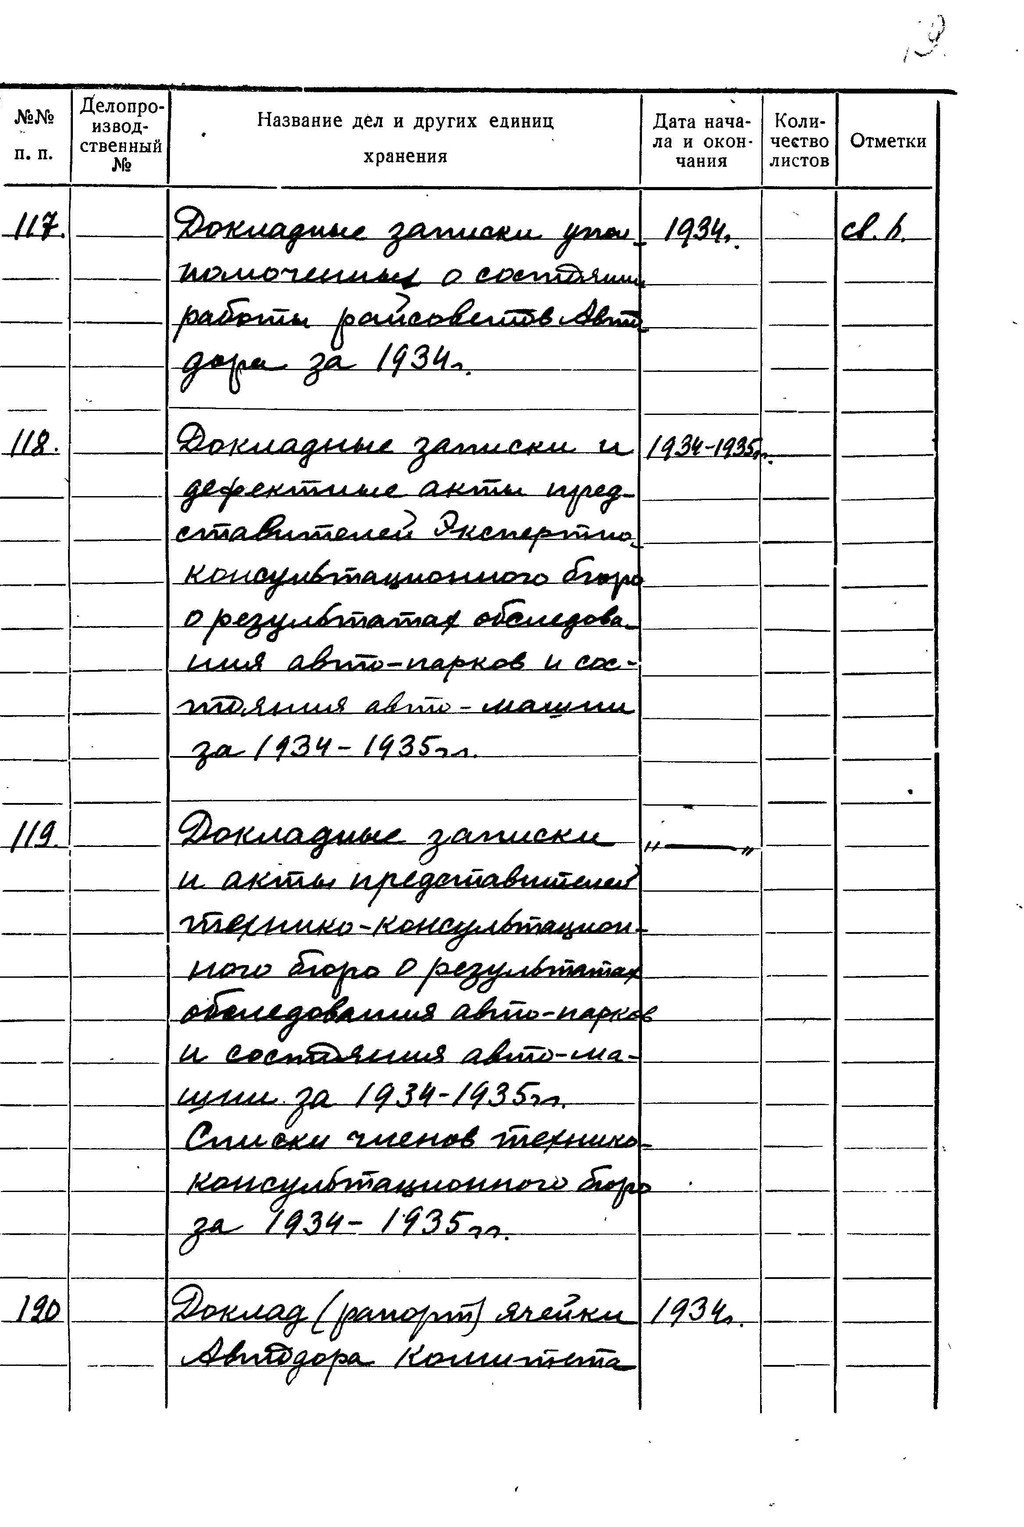 19.
№№ п. п. Делопро-извод-ственный № Название дел и других единиц хранения Дата нача-ла и окон-чания Коли-чество листов Отметки
117. Докладные записки упол- 1934г. св. 6.
номоченных о состоянии
работы райсоветов Авто-
дора за 1934г.
118. Докладные записки и 1934-1935гг.
дефектные акты пред-
ставителей Экспертно-
консультационного бюро
о результатах обследова-
ния авто-парков и сос-
тояния авто-машин
за 1934-1935гг.
119. Докладные записки „ — "
и акты представителей
технико-консультацион-
ного бюро о результатах
обследования авто-парков
и состояния авто-ма-
шин за 1934-1935гг.
Списки членов технико-
консультационного бюро
за 1934-1935гг.
120 Доклад (рапорт) ячейки 1934г.
Автодора Комитета